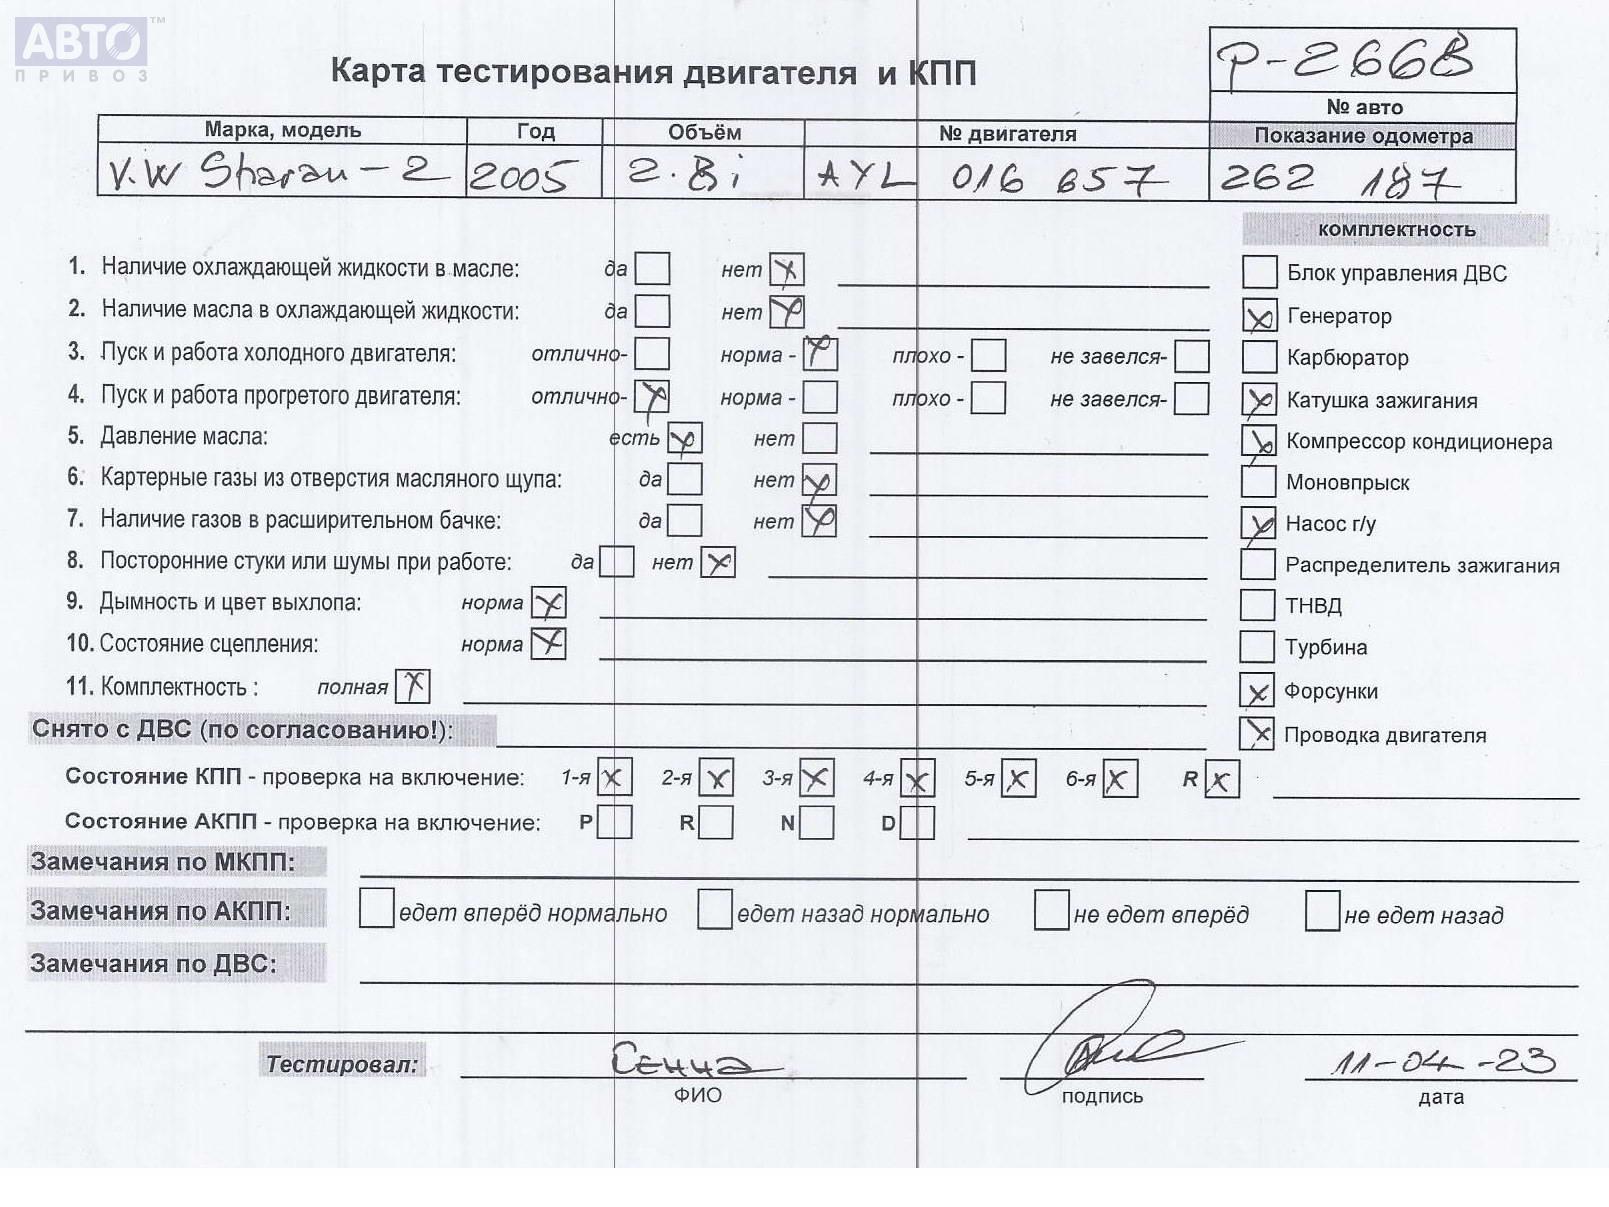 АВТО™
ПРИВОЗ
Карта тестирования двигателя и КПП
P-266B
№ авто
Марка, модель Год Объём № двигателя Показание одометра
V.W Sharan-2 2005 2.8i AYL 016 657 262 187
комплектность
1. Наличие охлаждающей жидкости в масле: да нет x
Блок управления ДВС
2. Наличие масла в охлаждающей жидкости: да нет x
x Генератор
3. Пуск и работа холодного двигателя: отлично- норма - x плохо - не завелся-
Карбюратор
4. Пуск и работа прогретого двигателя: отлично- x норма - плохо - не завелся-
x Катушка зажигания
5. Давление масла: есть x нет
x Компрессор кондиционера
6. Картерные газы из отверстия масляного щупа: да нет x
Моновпрыск
7. Наличие газов в расширительном бачке: да нет x
x Насос г/у
8. Посторонние стуки или шумы при работе: да нет x
Распределитель зажигания
9. Дымность и цвет выхлопа: норма x
ТНВД
10. Состояние сцепления: норма x
Турбина
11. Комплектность : полная x
x Форсунки
Снято с ДВС (по согласованию!):
x Проводка двигателя
Состояние КПП - проверка на включение: 1-я x 2-я x 3-я x 4-я x 5-я x 6-я x R x
Состояние АКПП - проверка на включение: P R N D
Замечания по МКПП:
Замечания по АКПП: едет вперёд нормально едет назад нормально не едет вперёд не едет назад
Замечания по ДВС:
Тестировал: Сенна 11-04-23
ФИО подпись дата